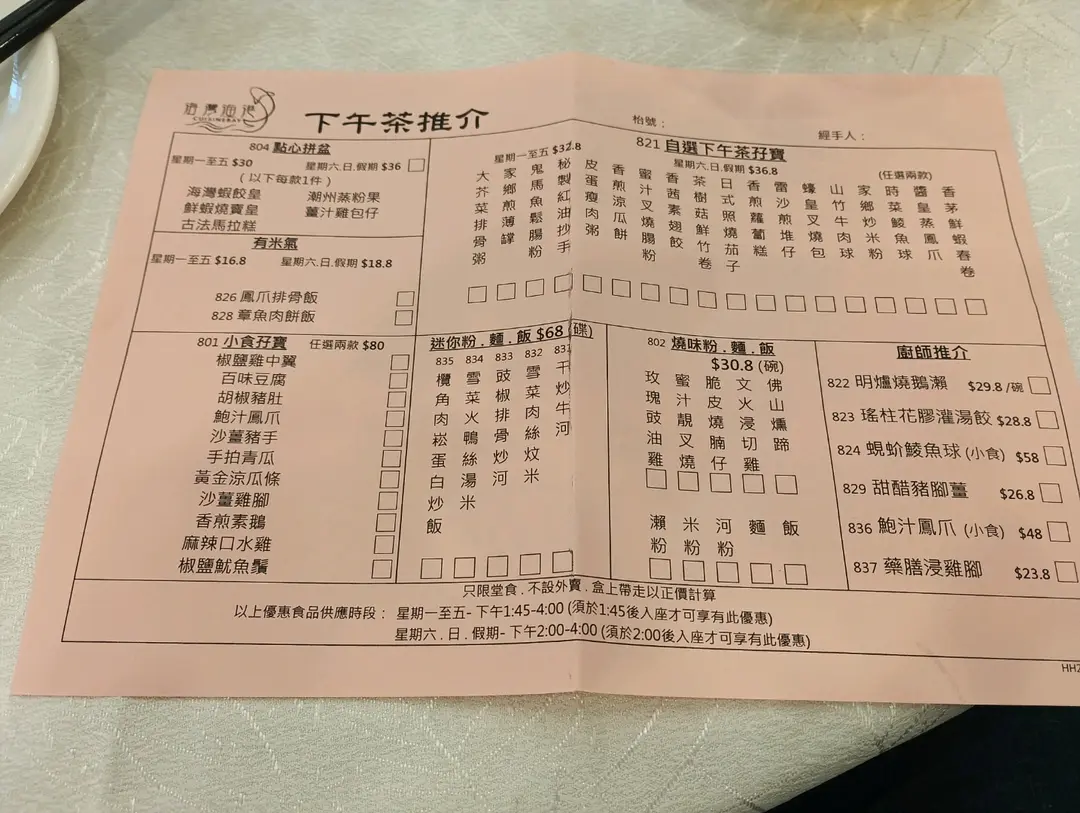 CUISINE BAY
下午茶推介
枱號：
經手人：
804 點心拼盆
星期一至五 $30 星期六.日.假期 $36
(以下每款1件)
海灣蝦餃皇 潮州蒸粉果
鮮蝦燒賣皇 薑汁雞包仔
古法馬拉糕
有米氣
星期一至五 $16.8 星期六.日.假期 $18.8
826 鳳爪排骨飯
828 章魚肉餅飯
821 自選下午茶孖寶
星期一至五 $32.8 星期六.日.假期 $36.8 (任選兩款)
大芥菜排骨粥
家鄉煎薄罉
鬼馬魚鬆腸粉
秘製紅油抄手
皮蛋瘦肉粥
香煎瓜餅
蜜汁叉燒腸粉
香茜素翅餃
茶樹菇鮮竹卷
日式照燒茄子
香煎蘿蔔糕
雷沙煎堆仔
蠔皇叉燒包
山竹牛肉球
家鄉炒米粉
時菜鯪魚球
醬皇蒸鳳爪
香茅鮮蝦春卷
801 小食孖寶 任選兩款 $80
椒鹽雞中翼
百味豆腐
胡椒豬肚
鮑汁鳳爪
沙薑豬手
手拍青瓜
黃金涼瓜條
沙薑雞腳
香煎素鵝
麻辣口水雞
椒鹽魷魚鬚
迷你粉.麵.飯 $68 (碟)
835 欖角肉崧蛋白炒飯
834 雪菜火鴨絲湯米
833 豉椒排骨炒河
832 雪菜肉絲炆米
831 干炒牛河
802 燒味粉.麵.飯
$30.8 (碗)
玫瑰豉油雞
蜜汁靚叉燒
脆皮燒腩仔
文火浸切雞
佛山燻蹄
瀨粉
米粉
河粉
麵
飯
廚師推介
822 明爐燒鵝瀨 $29.8 /碗
823 瑤柱花膠灌湯餃 $28.8
824 蜆蚧鯪魚球 (小食) $58
829 甜醋豬腳薑 $26.8
836 鮑汁鳳爪 (小食) $48
837 藥膳浸雞腳 $23.8
只限堂食.不設外賣.盒上帶走以正價計算
以上優惠食品供應時段： 星期一至五- 下午1:45-4:00 (須於1:45後入座才可享有此優惠)
星期六.日.假期- 下午2:00-4:00 (須於2:00後入座才可享有此優惠)